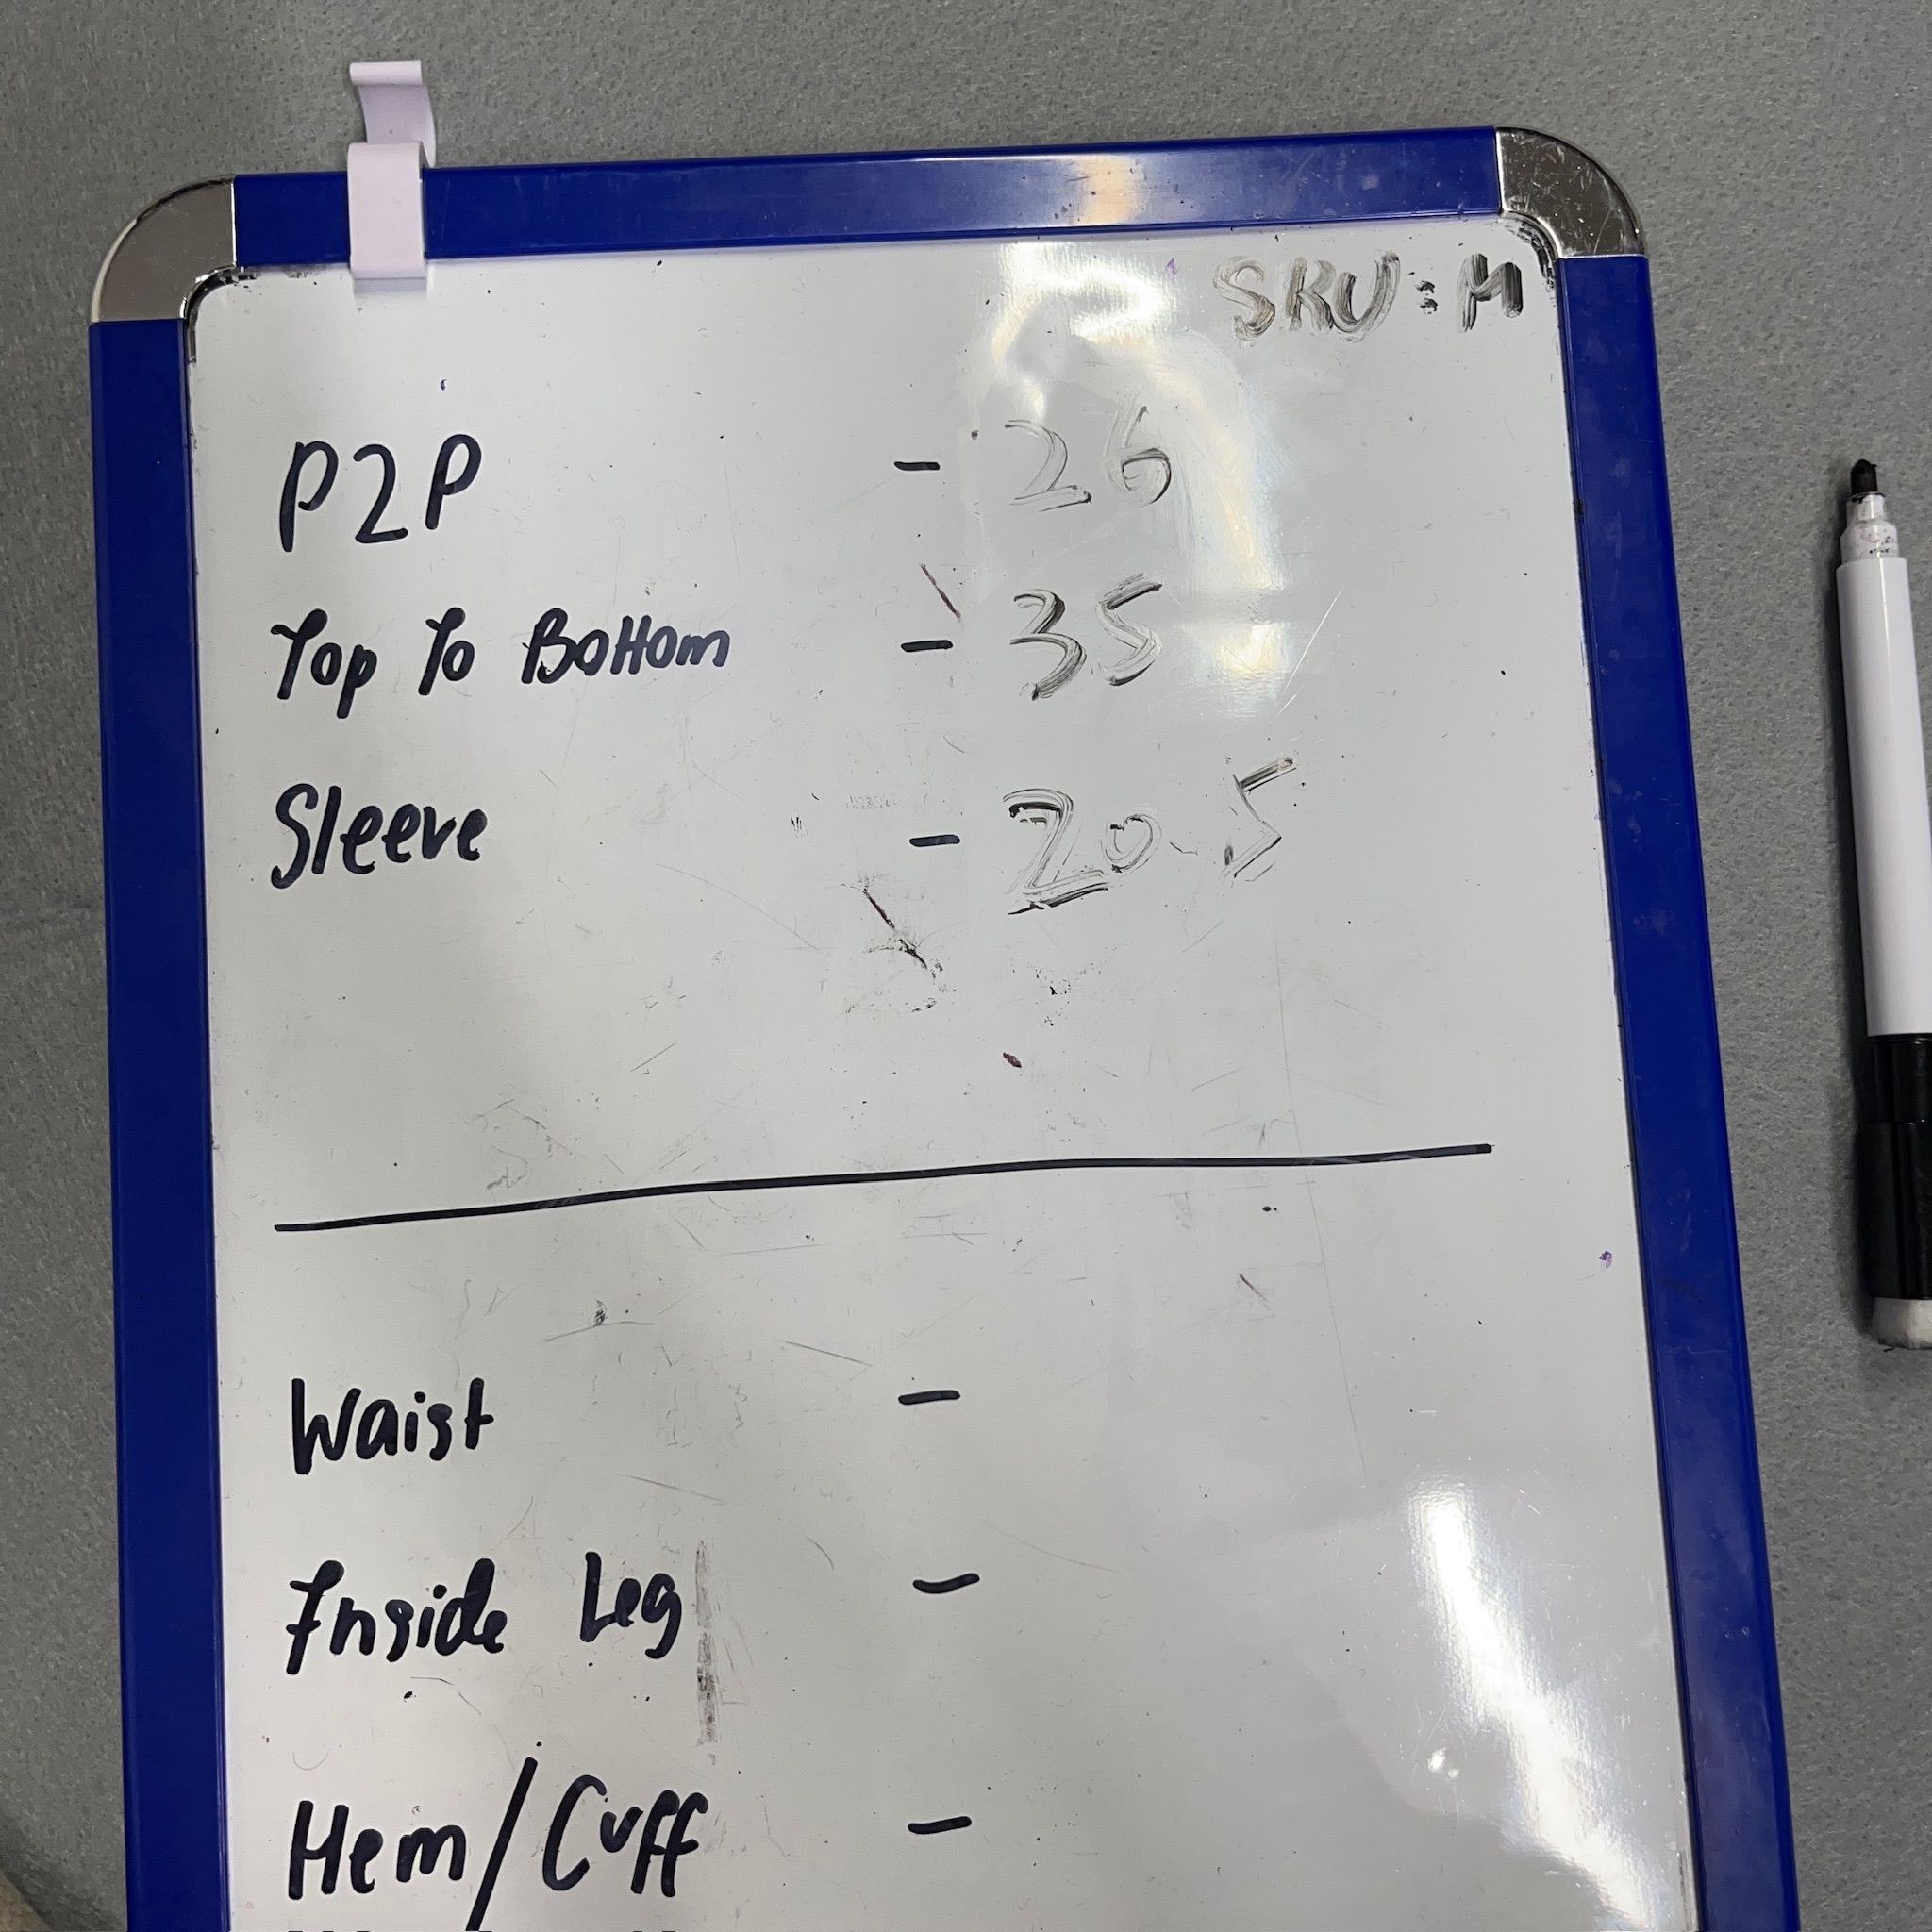 SKU: M
P2P - 26
Top To Bottom - 35
Sleeve - 20.5
Waist -
Inside Leg -
Hem/Cuff -